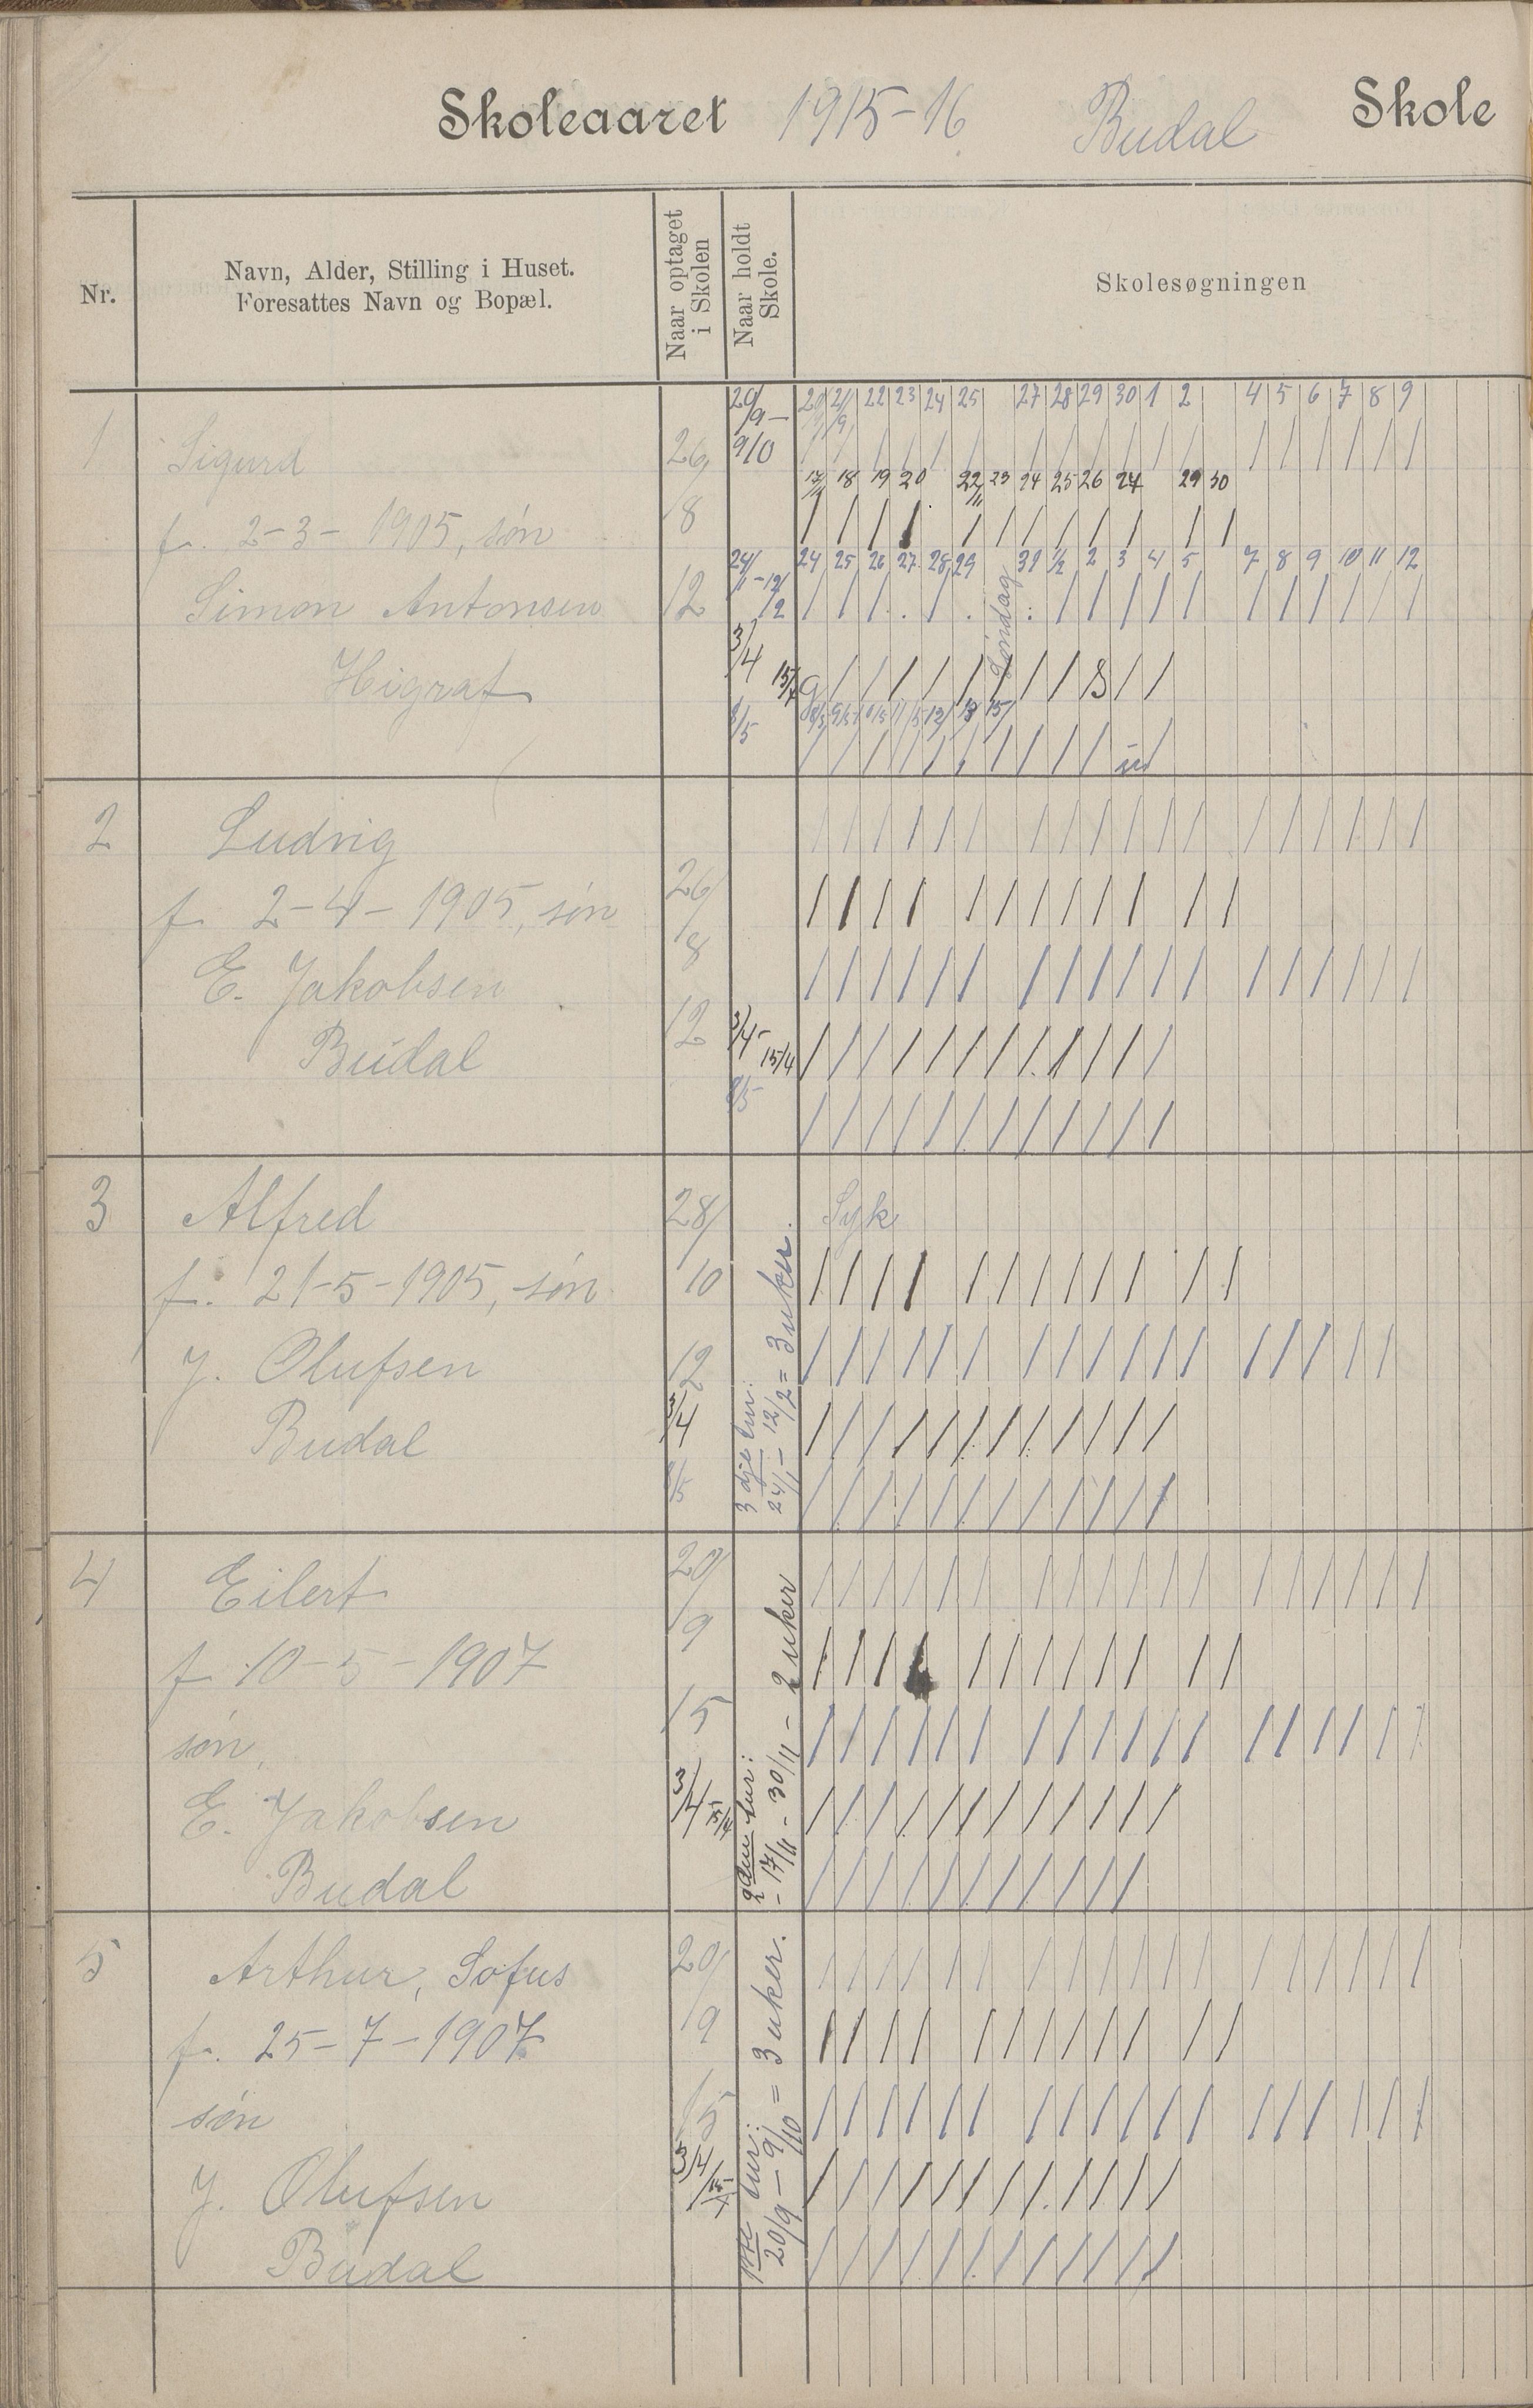 Skoleaaret 1915-16 Budal Skole
Nr.
Navn, Alder, Stilling i Huset.
Foresattes Navn og Bopæl.
Naar optaget
i Skolen
Naar holdt
Skole.
Skolesøgningen
20/9 - 9/10
20/9 21/9 22 23 24 25 27 28 29 30 1 2 4 5 6 7 8 9
1 Sigurd 26/8
17/11 18 19 20 22/11 23 24 25 26 27 29 30
f. 2-3-1905, søn
24/1-12/2 24 25 26 27 28 29 31 1/2 2 3 4 5 7 8 9 10 11 12
Simon Antonsen 12
Søndag
Higraf
3/4 15/4 g s
8/5 8/5 9/5 10/5 11/5 12/ 13 15/
2 Ludvig
f. 2-4-1905, søn 26/8
E. Jakobsen
Budal 12 3/4- 15/4
8/5
3 Alfred 28/10 Syk
f. 21-5-1905, søn
J. Olufsen 12
Budal 3/4
8/5
3dje tur:
24/1 - 12/2 = 3 uker.
4 Eilert 20/9
f 10-5-1907
søn, 15
E. Jakobsen 3/4 15/4
Budal
2den tur:
- 17/11 - 30/11 - 2 uker
5 Arthur, Sofus 20/9
f. 25-7-1907
søn 15
J. Olufsen 3/4/15/4
Budal
1ste tur:
20/9 - 9/10 = 3 uker.